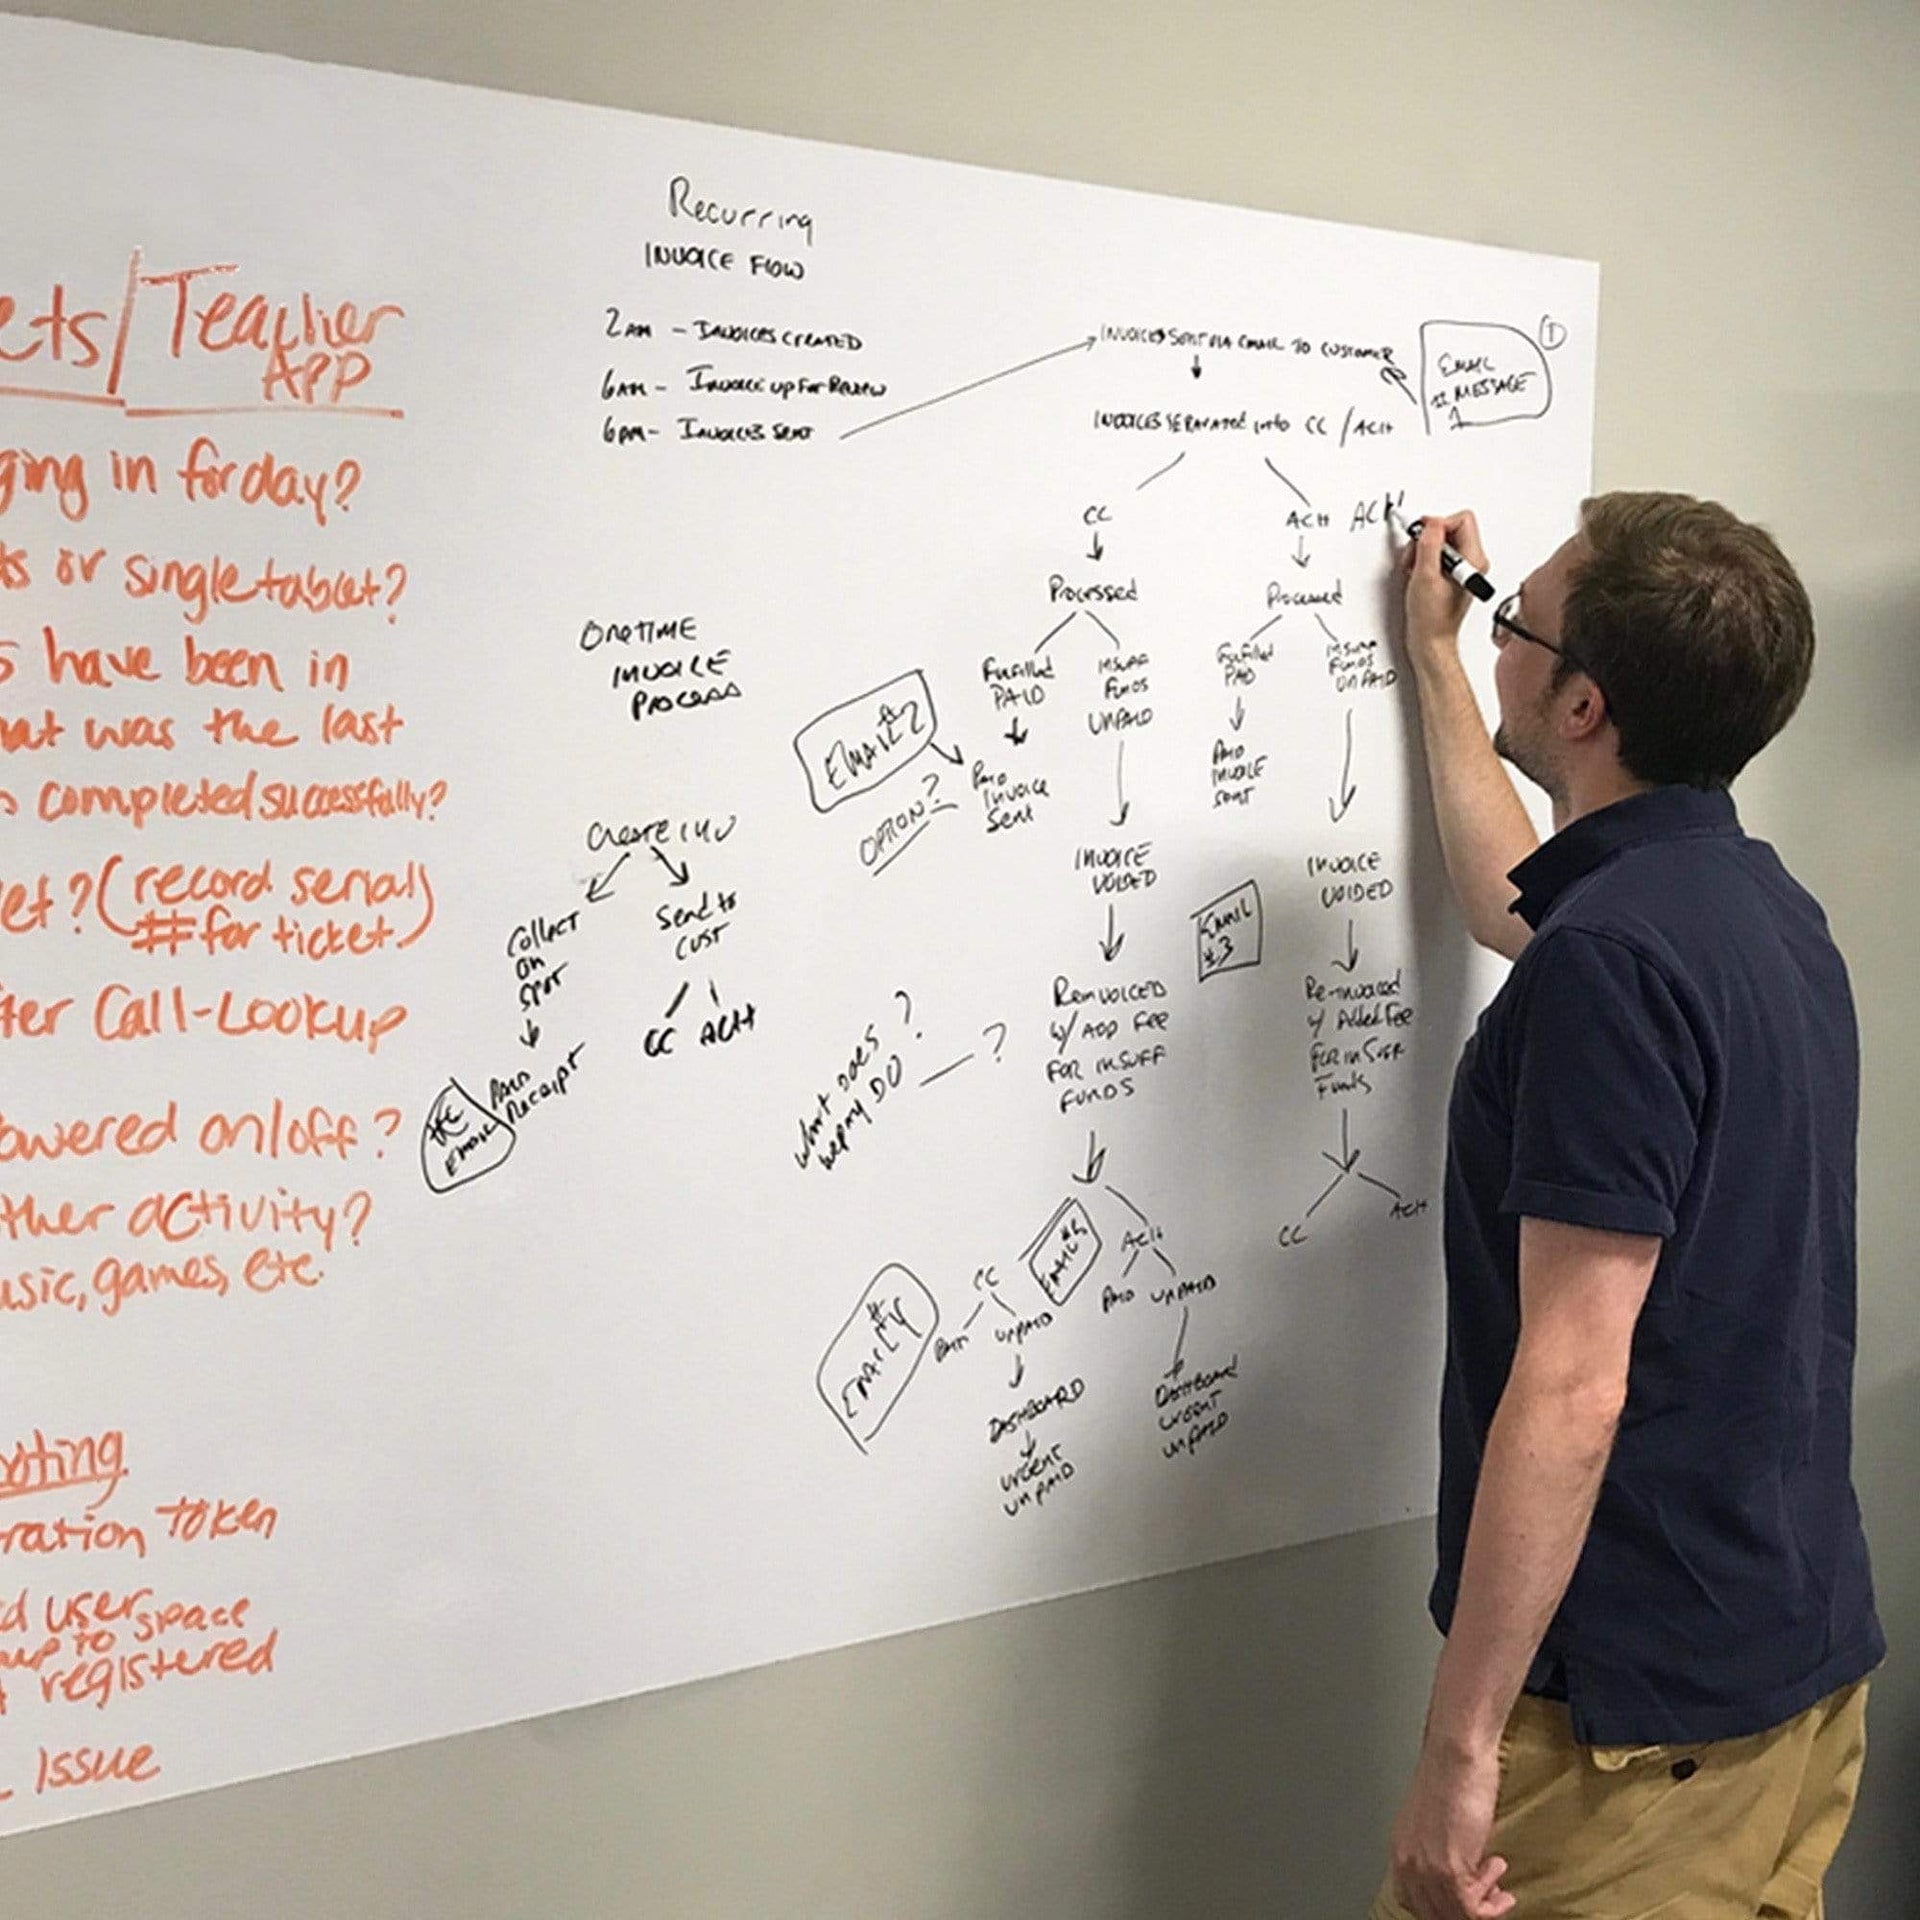 ets/Teacher
APP
ging in for day?
ts or single tablet?
s have been in
hat was the last
completed successfully?
et? (record serial)
# for ticket.)
ter Call-Lookup
owered on/off?
ther activity?
usic, games, etc.
oting
ration token
d user space
up to
registered
Issue
Recurring
INVOICE FLOW
2AM - INVOICES CREATED
6AM - Invoice up for Review
6PM - INVOICES SENT
ONETIME
INVOICE
PROCESS
Create INV
Collect
on
spot
Send to
CUST
CC ACH
PAID
Receipt
EMAIL
INVOICES SENT VIA EMAIL TO CUSTOMER
EMAIL
MESSAGE
1
1
INVOICES SEPARATED into CC / ACH
CC
ACH
ACH
Processed
Processed
Fulfilled
PAID
INSUFF
FUNDS
UNPAID
Fulfilled
PAID
INSUFF
FUNDS
UNPAID
EMAIL #2
OPTION?
PAID
INVOICE
Sent
PAID
INVOICE
SENT
INVOICE
VOIDED
INVOICE
VOIDED
EMAIL
#3
What does
wepay DO
?
?
ReINVOICED
w/ ADD FEE
FOR INSUFF
FUNDS
Re-invoiced
w/ Added Fee
For inSuff
Funds
CC
ACH
EMAIL #4
EMAIL #5
CC
ACH
PAID
UNPAID
PAID
UNPAID
DASHBOARD
URGENT
UNPAID
DASHBOARD
URGENT
UNPAID